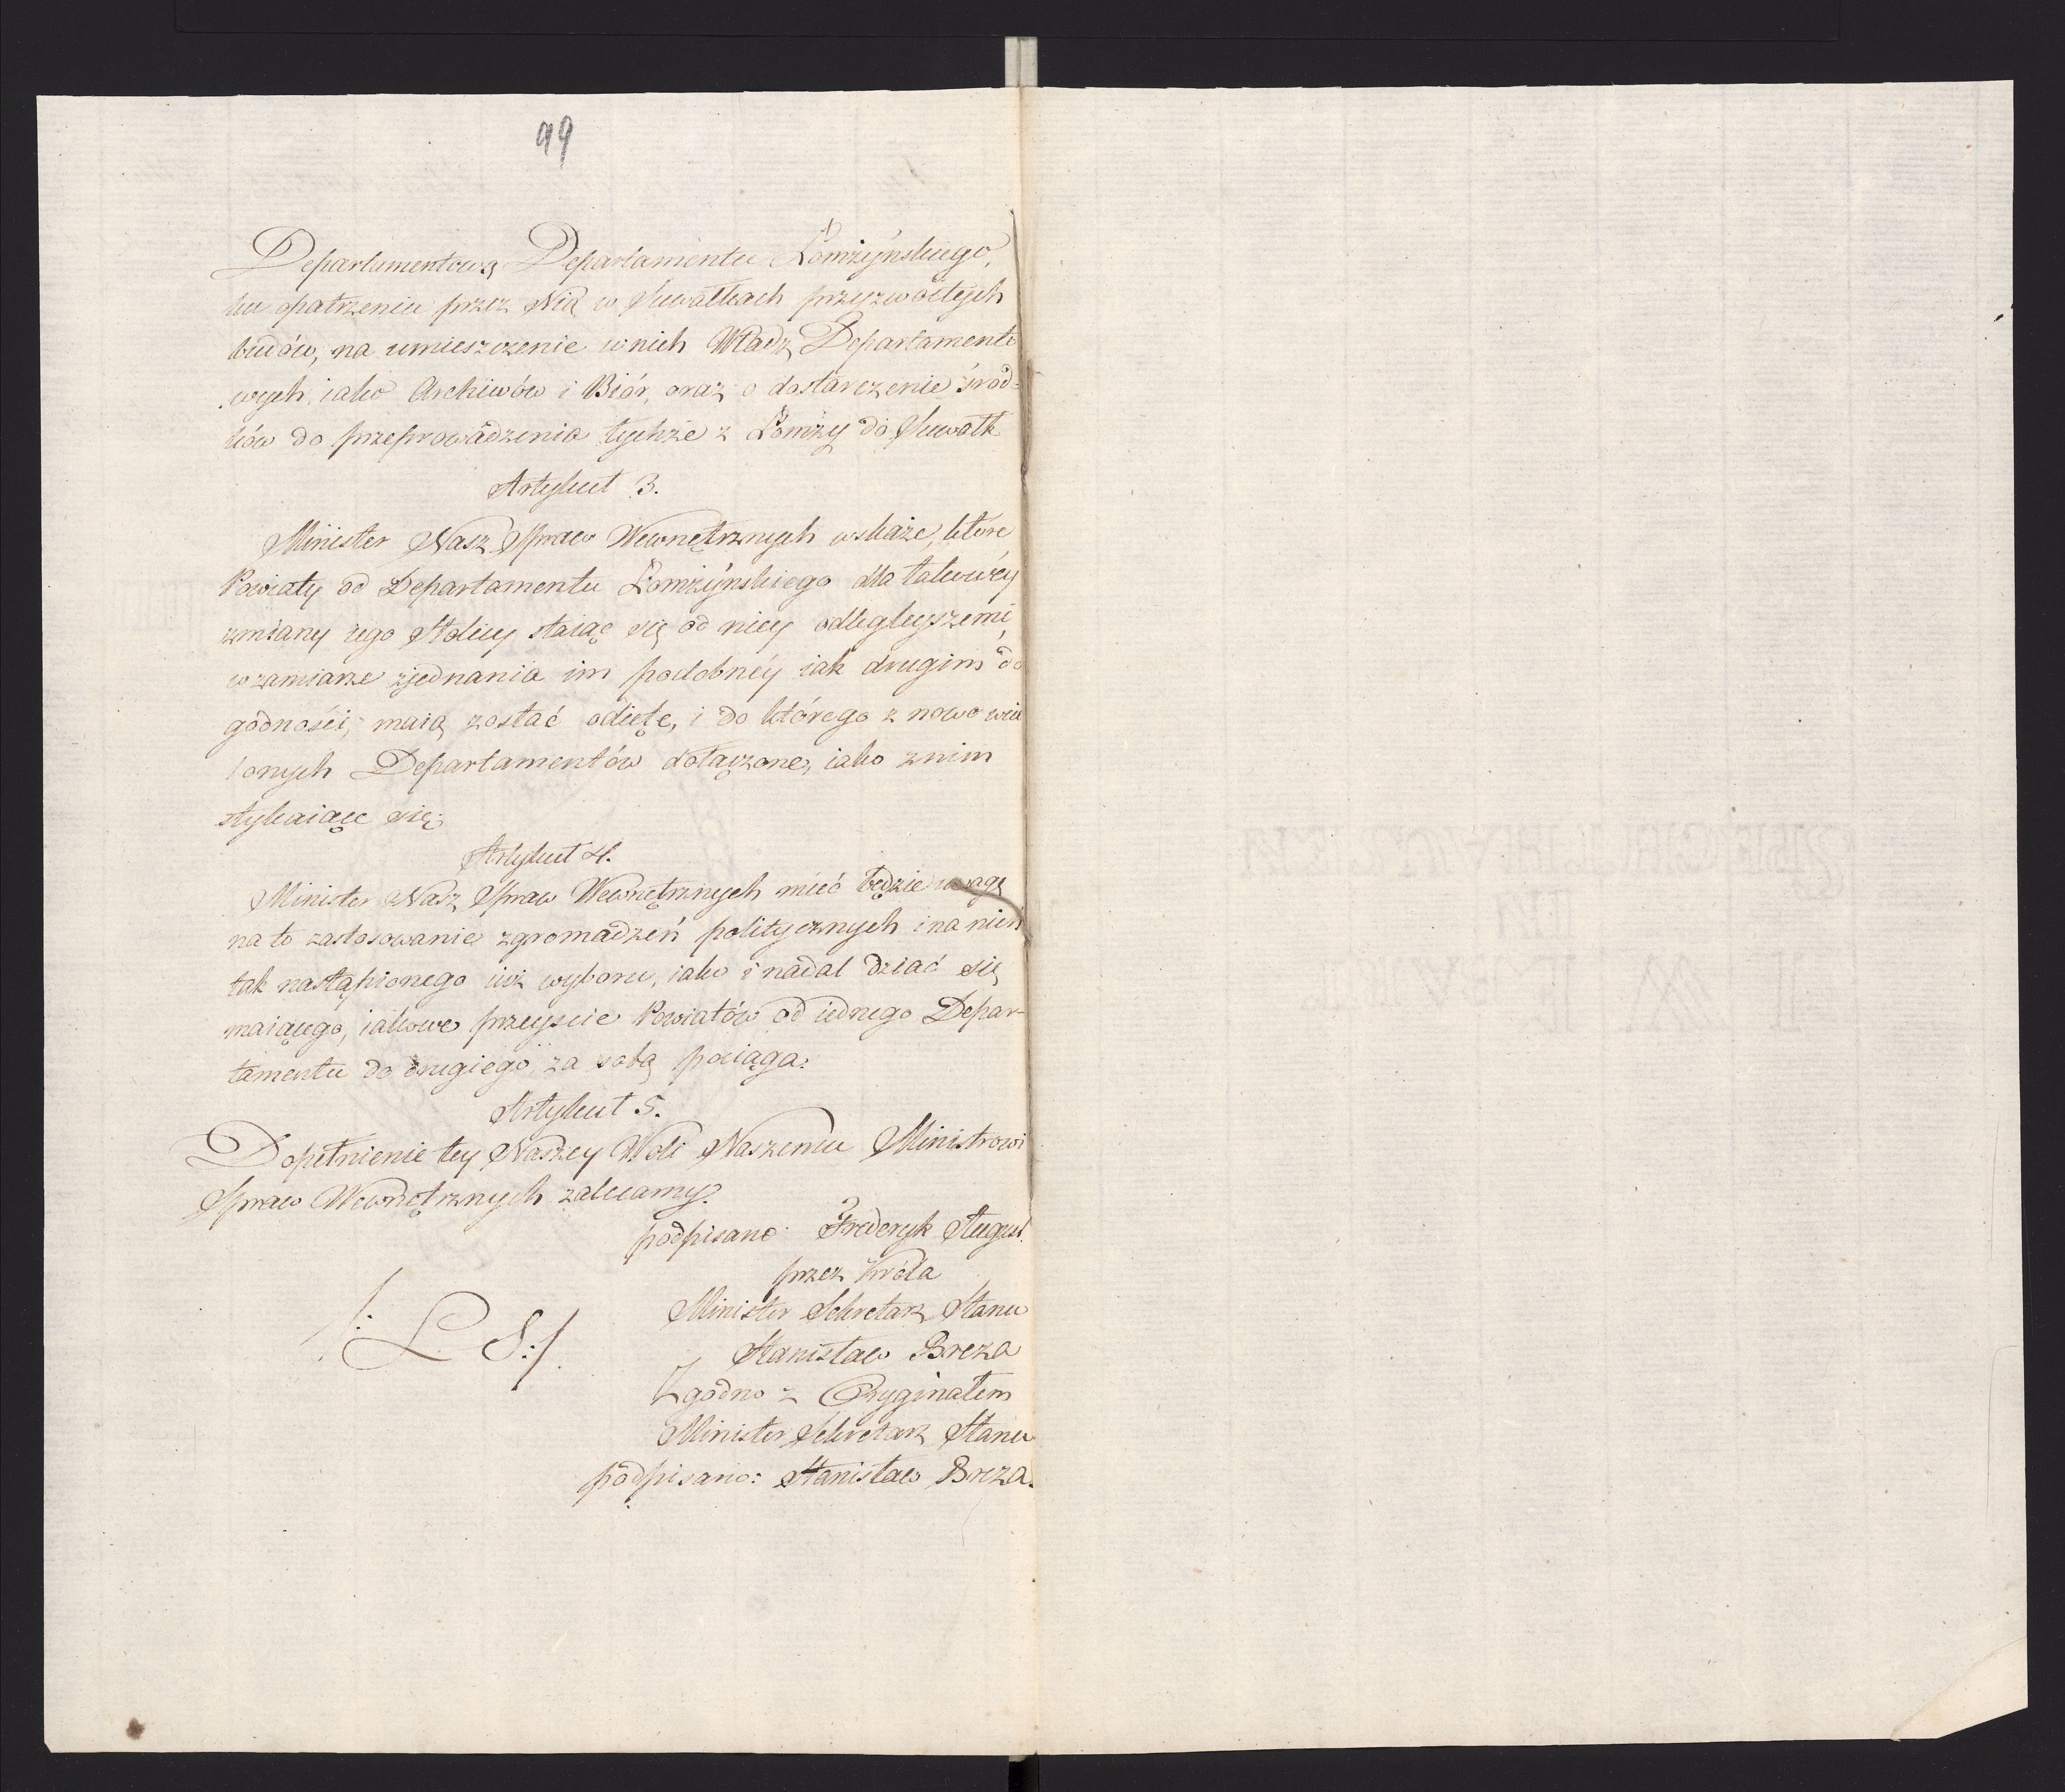 99
Departamentową Departamentu Łomżyńskiego,
ku opatrzeniu przez Nią w Suwałkach przyzwoitych
budów, na umieszczenie w nich Władz Departamento
wych, iako Archiwów i Biór, oraz o dostarczenie środ=
ków do przeprowadzenia tychże z Łomży do Suwałk
Artykuł 3.
Minister Nasz Spraw Wewnętrznych wskaże, które
Powiaty od Departamentu Łomżyńskiego dla takowéy
zmiany iego Stolicy staiąc się od niey odległeyszemi,
w zamiarze zjednania im podobnéy iak drugim do
godności, maią zostać odięte, i do którego z nowo wcie
lonych Departamentów dołączone, iako z nim
stykaiące się.
Artykuł 4.
Minister Nasz Spraw Wewnętrznych mieć będzie uwagę
na to zastosowanie zgromadzeń politycznych i na nich
tak nastąpionego iuż wyboru, iako i nadal dziać się
maiącego, iakowe przeyście Powiatów od iednego Depar-
tamentu do drugiego za sobą pociąga.
Artykuł 5.
Dopełnienie tey Naszey Woli Naszemu Ministrowi
Spraw Wewnętrznych zalecamy.
podpisano: Frederyk August.
przez Króla
Minister Sekretarz Stanu
Stanisław Breza
/: L. S. :/
Zgodno z Oryginałem
Minister Sekretarz Stanu
podpisano: Stanisław Breza.